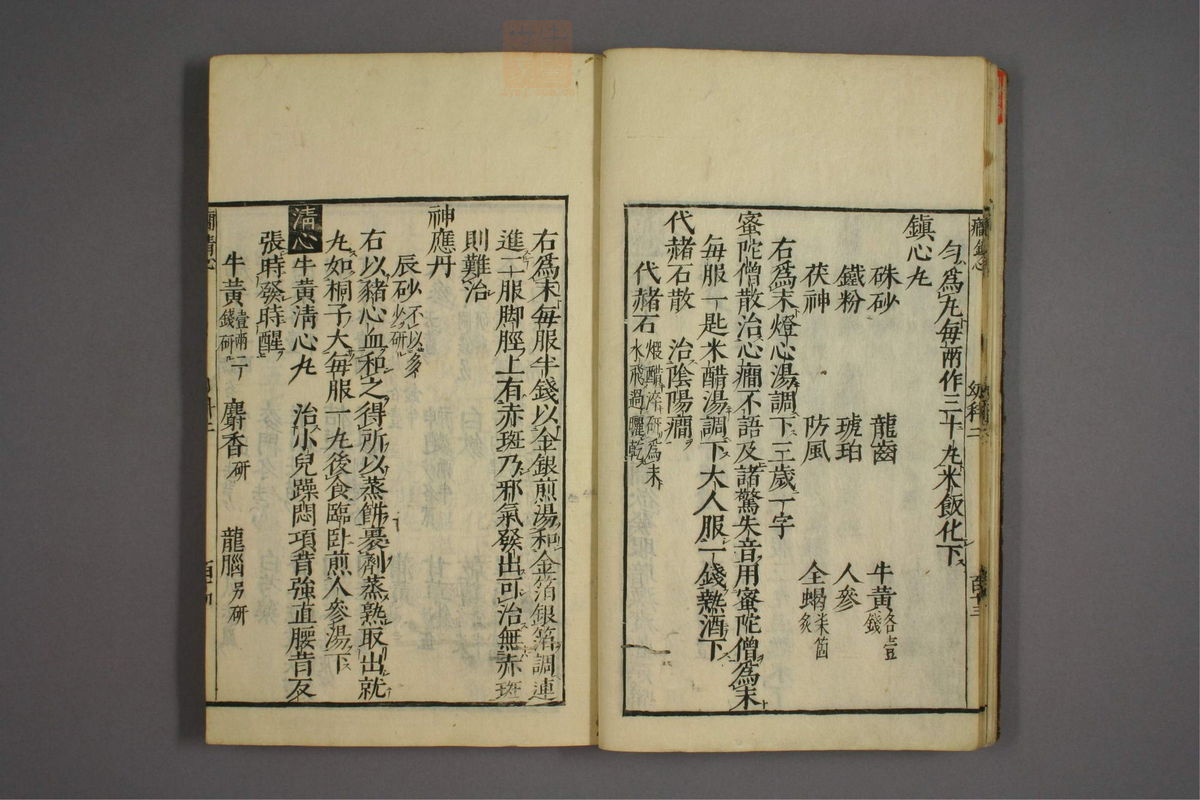 癇鎮心　幼科二　百三
勻爲丸每兩作三十丸米飯化下
鎮心丸
硃砂　龍齒　牛黃各壹錢
鐵粉　琥珀　人參
茯神　防風　全蝎柒箇炙
右爲末燈心湯調下三歲一字
蜜陀僧散治心癇不語及諸驚失音用蜜陀僧爲末
每服一匙米醋湯調下大人服一錢熱酒下
代赭石散　治陰陽癇
代赭石煅醋淬研爲末水飛過曬乾
右爲末每服半錢以金銀煎湯和金箔銀箔調連
進二服脚脛上有赤斑乃邪氣發出可治無赤斑
則難治
神應丹
辰砂不以多少研
右以豬心血和之得所以蒸餠裹劑蒸熟取出就
丸如桐子大每服一丸後食臨臥煎人參湯下
清心牛黃清心丸　治小兒躁悶項背強直腰背反
張時發時醒
牛黃壹兩二錢研　麝香研　龍腦另研